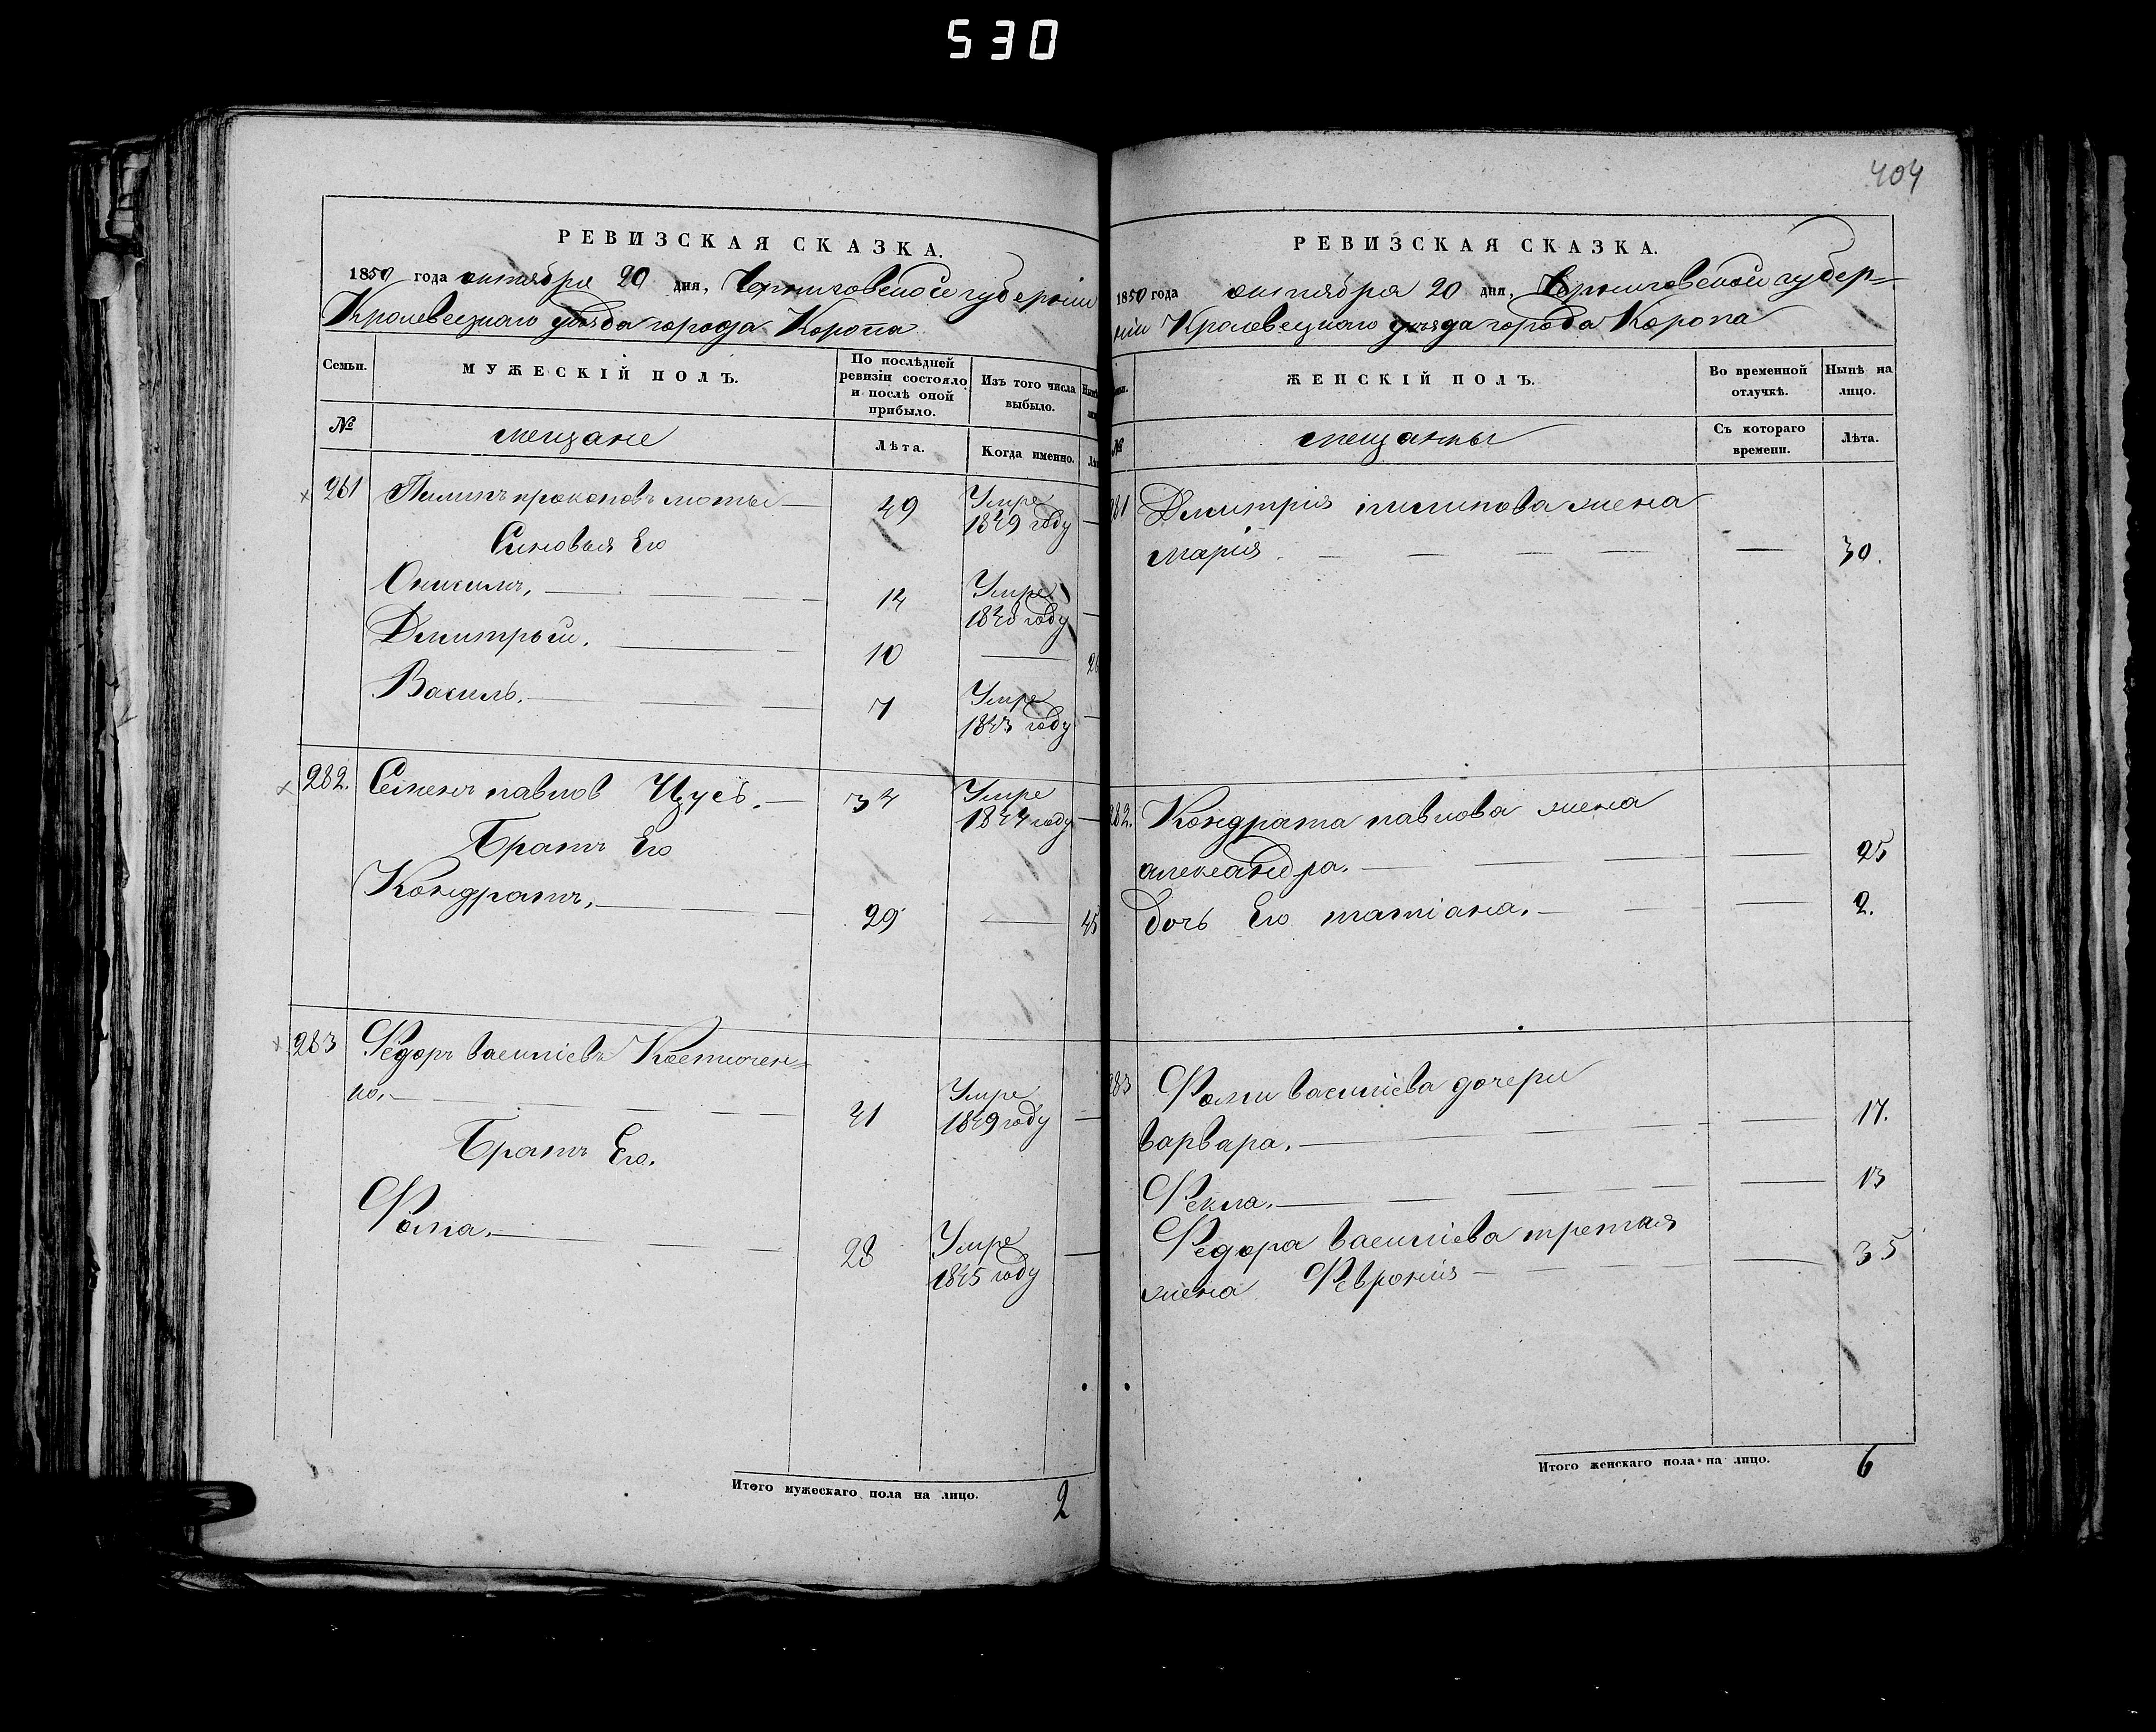 530
404
РЕВИЗСКАЯ СКАЗКА.
1850 года октября 20 дня, Черниговской губерніи
Кролевецкаго уѣзда города Коропа
Семьи.
МУЖЕСКІЙ ПОЛЪ.
По послѣдней ревизіи состояло и послѣ оной прибыло.
Изъ того числа выбыло.
№
мещане
Лѣта.
Когда именно.
281 Пилипъ прокоповъ 49 Умре 1849 году
Синовья Его
12 Умре
году
Дмитрый. 10
Василь. 7 Умре
1843 году
282. Семенъ павлов Цусь. 34 Умре
1844 году
Братъ Его
Кондратъ. 29 45
283 Ѳедоръ василіевъ Костючен=
ко. 41 Умре
1849 году
Братъ Его.
Ѳома. 28 Умре
1845 году
Итого мужескаго пола на лицо. 2
РЕВИЗСКАЯ СКАЗКА.
1850 года октября 20 дня, Черниговской губер=
ніи Кролевецкаго уезда города Коропа
ЖЕНСКІЙ ПОЛЪ.
Во временной отлучкѣ.
Нынѣ на лицо.
№
мещанки
Съ котораго времени.
Лѣта.
281 Дмитрія пилипова жена
марія 30.
282. Кондрата павлова жена
александра. 25
дочь Его татіана. 2.
283 Ѳомы василіева дочери
варвара. 17.
Ѳекла. 13
Ѳедора василіева третая
жена Ѳевронія 35
Итого женскаго пола на лицо. 6